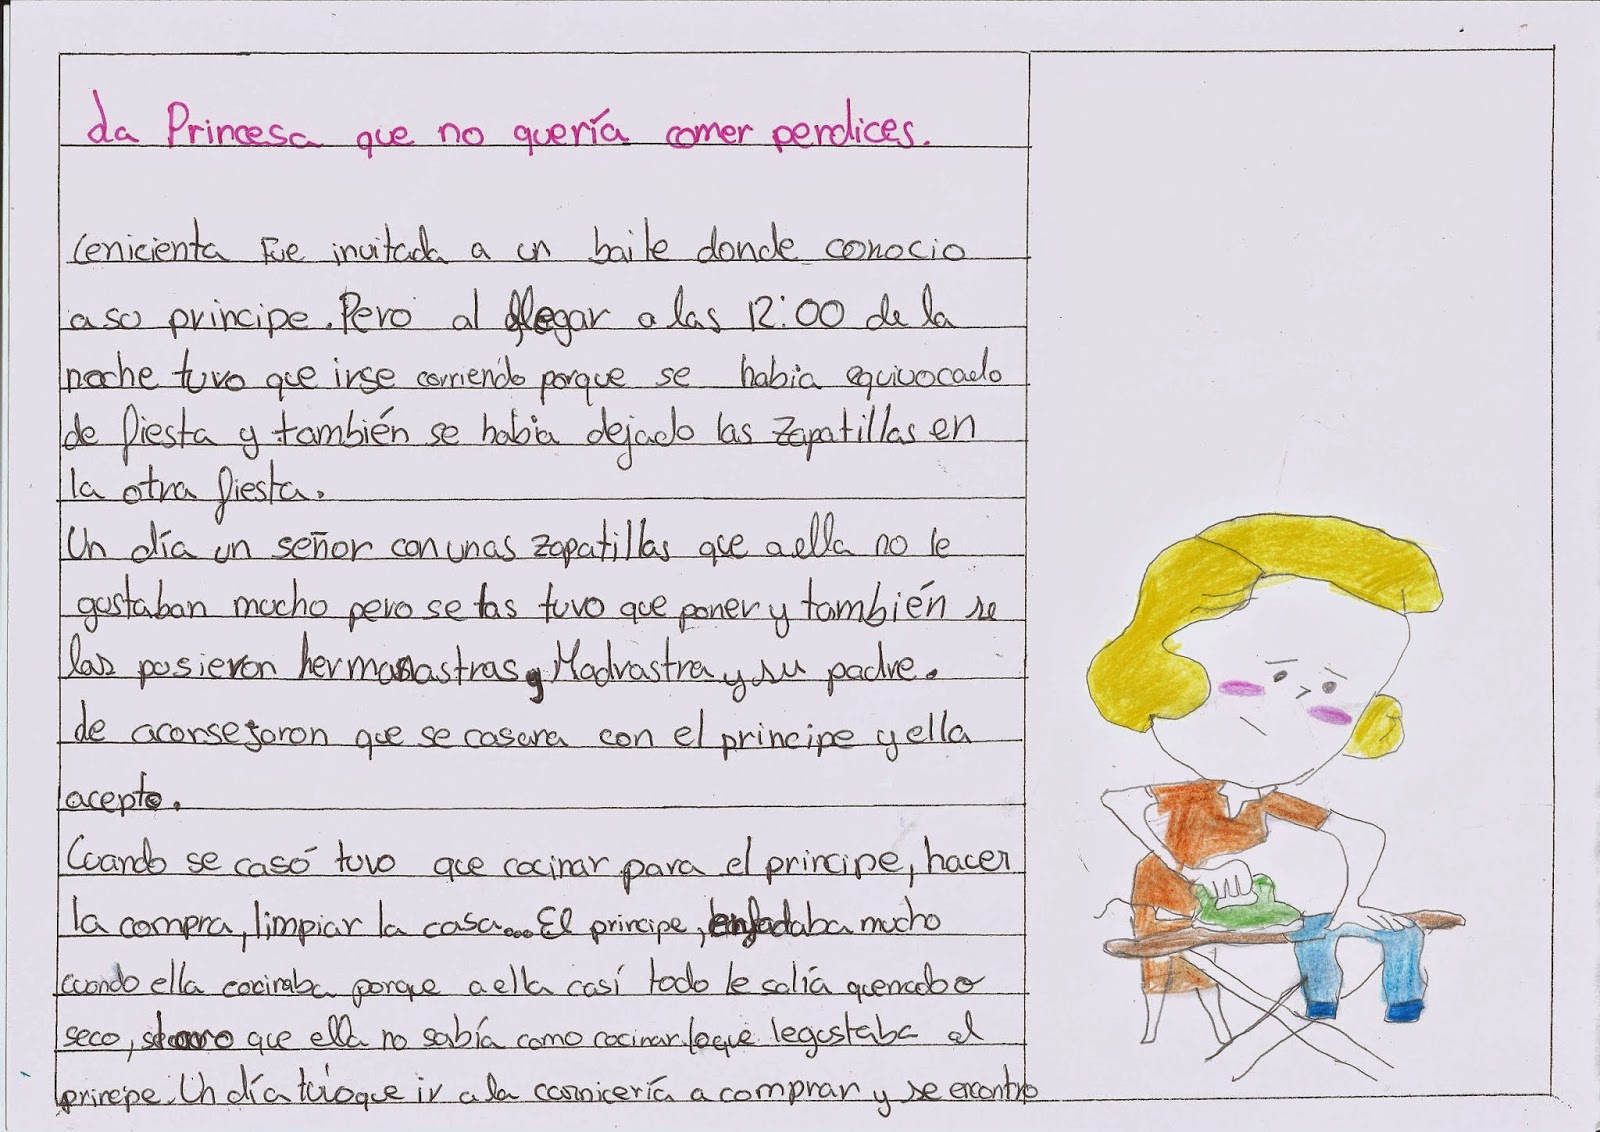 La Princesa que no quería comer perdices.
Cenicienta Fue invitada a un baile donde conocio
a su principe. Pero al llegar a las 12:00 de la
noche tuvo que irse corriendo porque se habia equivocado
de fiesta y también se había dejado las zapatillas en
la otra fiesta.
Un día un señor con unas zapatillas que a ella no le
gustaban mucho pero se las tuvo que poner y también se
las pusieron hermanastras, Madrastra y su padre.
Le aconsejaron que se casara con el principe y ella
acepto.
Cuando se casó tuvo que cocinar para el principe, hacer
la compra, limpiar la casa... El principe, enfadaba mucho
cuando ella cocinaba porque a ella casí todo le salía quemado o
seco, que ella no sabía como cocinar lo que le gustaba al
principe. Un día tuvo que ir a la carnicería a comprar y se encontro